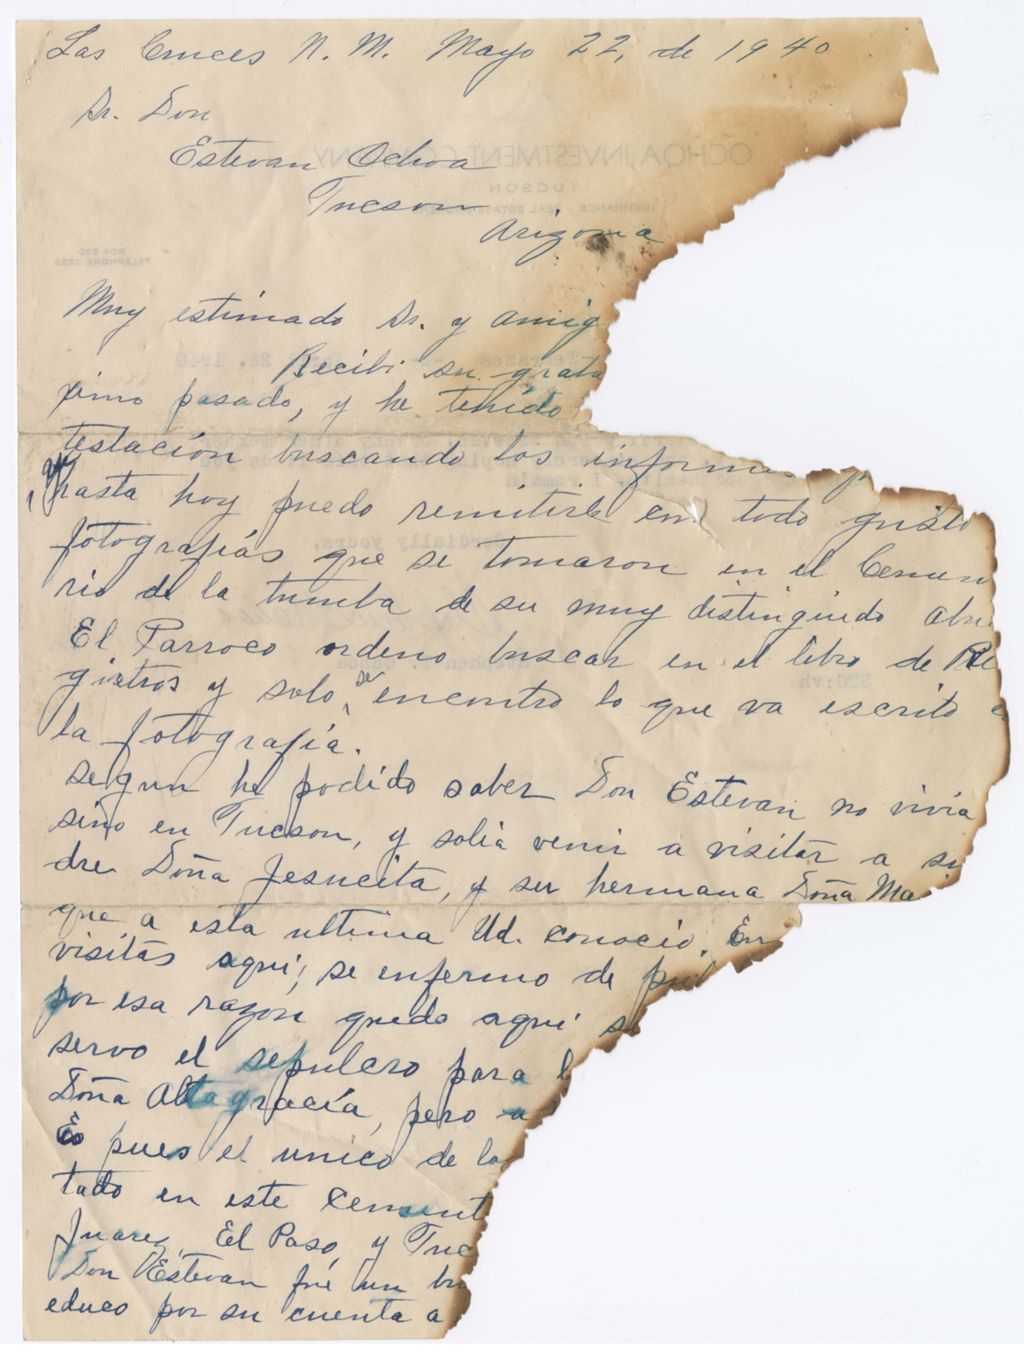 Las Cruces N. M. Mayo 22, de 1940
Sr. Don
Estevan Ochoa
Tucson
Arizona
OCHOA INVESTMENT COMPANY
TUCSON
INSURANCE - REAL ESTATE
BOX 590
TELEPHONE
Muy estimado Sr. y amig
Recibi su grata
ximo pasado, y he tenido
testación buscando los inform
y hasta hoy puedo remitirle con todo gusto
fotografiás que se tomaron en el Cemen
rio de la tumba de su muy distinguido abu
El Parroco ordeno buscar en el libro de Re
gistros y solo se encontro lo que va escrito e
la fotografia.
segun he podido saber Don Estevan no vivia
sino en Tucson, y solia venir a visitar a su
dre Doña Jesucita, y su hermana Doña Ma
que a esta ultima Ud. conocio. En
visitas aqui, se enfermo de pul
por esa razon quedo aqui s
servo el sepulcro para l
Doña Altagracia, pero a
Es pues el unico de los
tado en este Cement
Juarez, El Paso, y Tuc
Don Estevan fué un bu
educo por su cuenta a
26, 1940
I remain
Cordially yours,
Ochoa
:vh